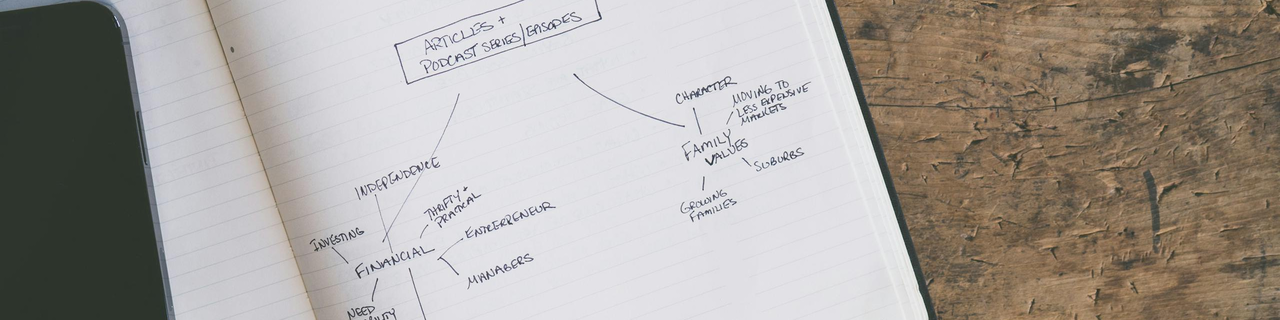 ARTICLES +
PODCAST SERIES/EPISODES
CHARACTER
MOVING TO
LESS EXPENSIVE
MARKETS
FAMILY
VALUES
SUBURBS
GROWING
FAMILIES
INDEPENDENCE
THRIFTY +
PRATICAL
INVESTING
ENTREPRENEUR
FINANCIAL
MANAGERS
NEED